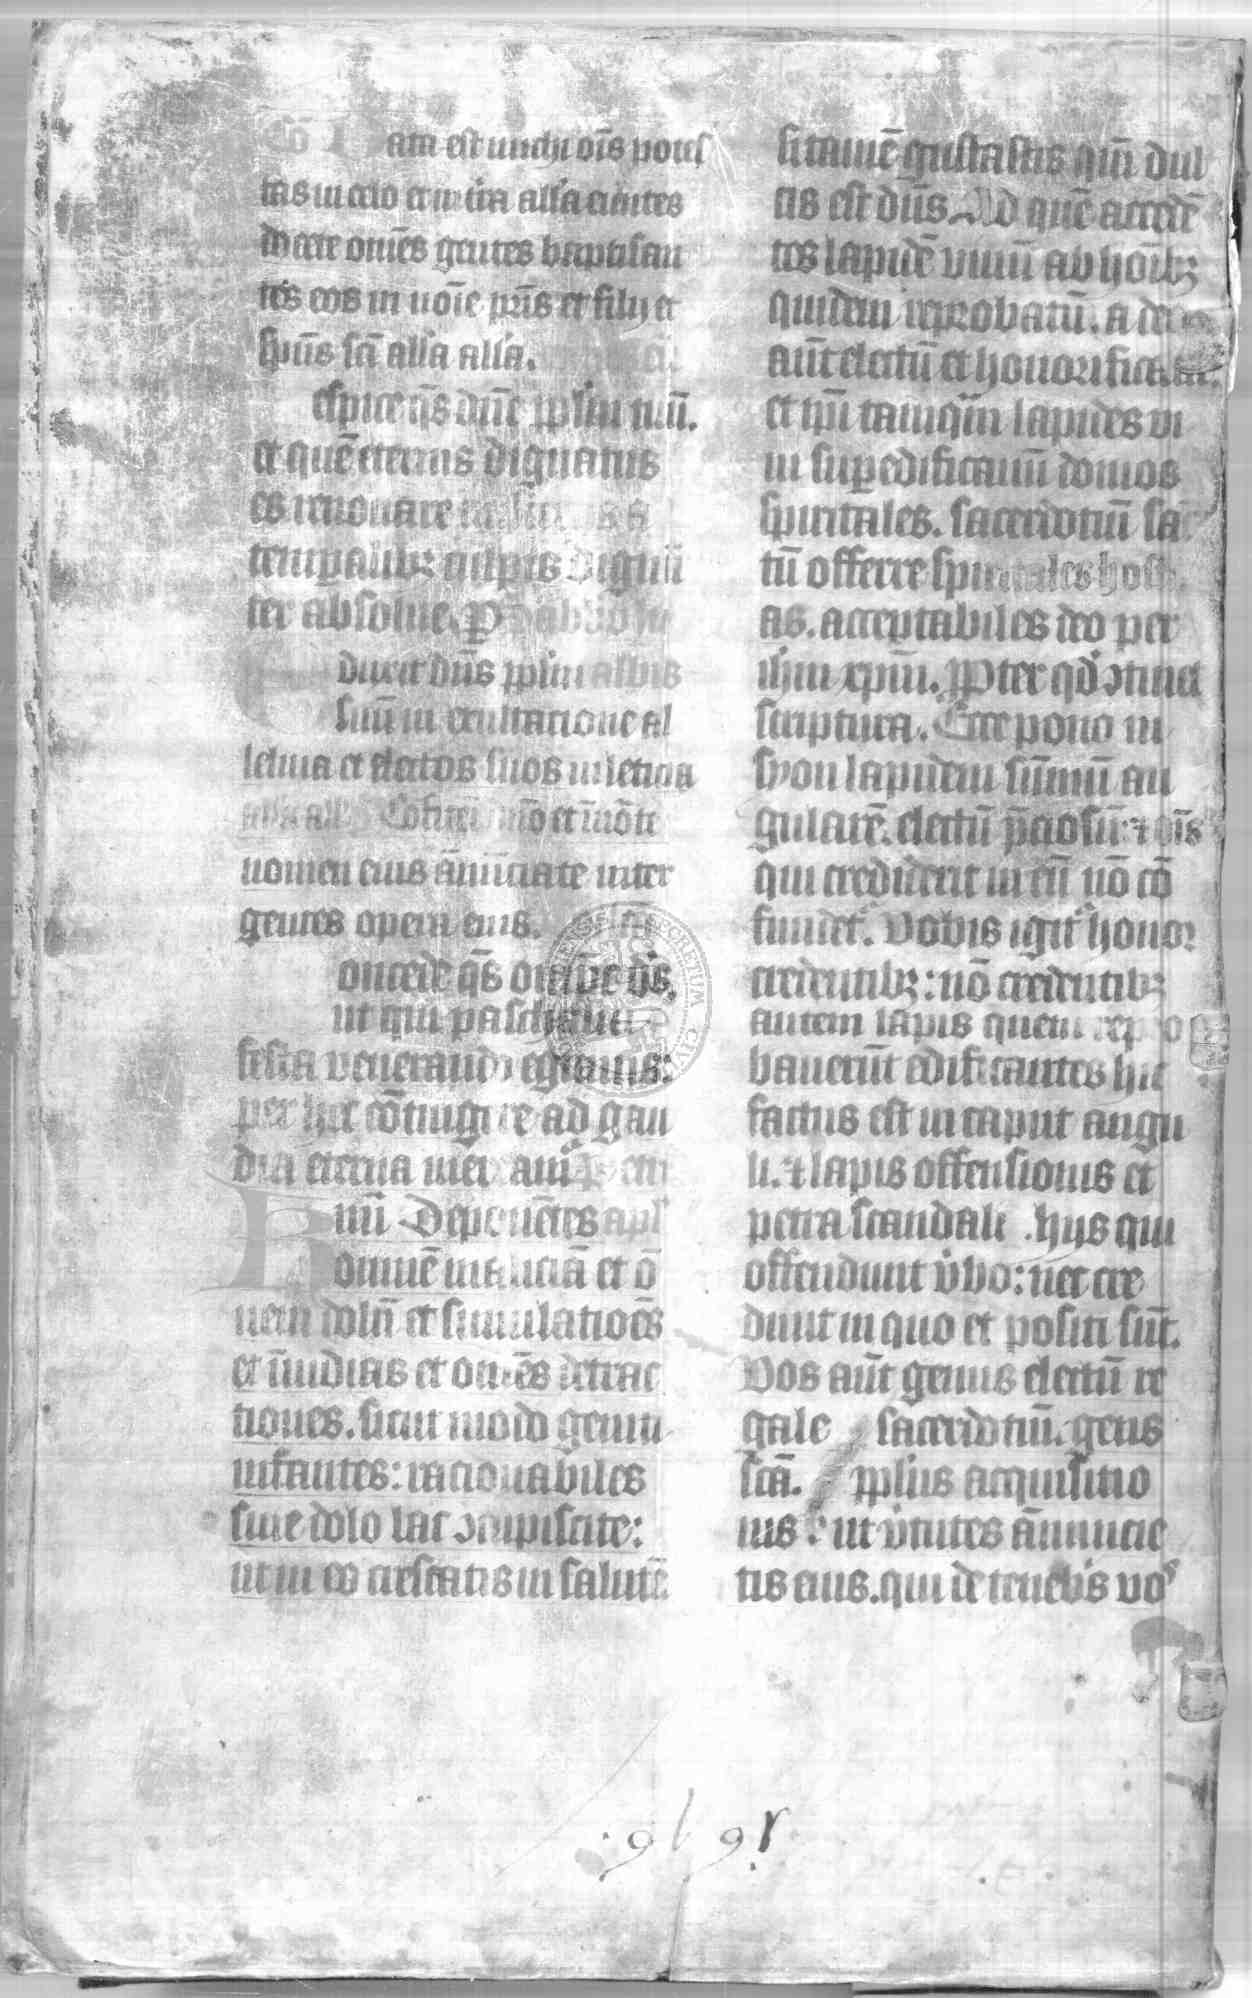 Co Data est michi oı̄s potes
tas in celo et in t̄ra all'a euntes
docete om̄es gentes baptisan
tes eos in noı̄e pr̄is et filij et
sp̄us sc̄i all'a all'a.
espice q̄s dn̄e pp̄lm tuū.
et quē eternis dignatus
es renouare misteriis a
temp̱alibꝫ culpis dignāt
ter absolue. P̱
duxit dn̄s pp̄lm
suū in exultatione al
leluia et electos suos in leticia
all'a all'a Cofitemi dn̄o et īuo te
nomen eius ānūciate inter
gentes opera eius.
oncede q̄s om̄ps d's.
ut qui paschalia
festa venerando egimus:
per hec cōtingere ad gau
dia eterna mereamur P̱
mi Deponētes
omnē maliciā et o
nem dolū et simulatiōes
et īuidias et om̄es detrac
tiones. sicut modo geniti
infantes: racionabiles
sine dolo lac ꝯcupiscite:
ut in eo crescatis in salutē
si tamē gustastis qm̄ dul
cis est dn̄s. Ad quē accedē
tes lapidē viuū ab hoı̄bꝫ
quidem reprobatū. a deo
aūt electū et honorificatū.
et ip̄i tamq̄m lapides vi
ui sup̱edificamı̄ domos
spiritales. sacerdotiū sā
tū offerre spiritales hosti
as. acceptabiles deo per
ih̄m xp̄m. P̱pter qd' ꝯtinet
scriptura. Ecce pono in
syon lapidem sūmū an
gularē. electū p̄ciosū: ⁊ oı̄s
qui crediderit in eū nō cō
fundet᷑. Vobis igit᷑ honor
credentibꝫ: nō credentibꝫ
autem lapis quem repro
bauerūt edificantes hic
factus est in caput angu
li. ⁊ lapis offensionis et
petra scandali . hijs qui
offendunt v̄bo: nec cre
dunt in quo et positi sūt.
Vos aūt genus electū re
gale sacerdotiū. gens
scā. pp̄lus acquisitio
nis : ut v̄tutes ānuncie
tis eius. qui de tenebr̄s vos